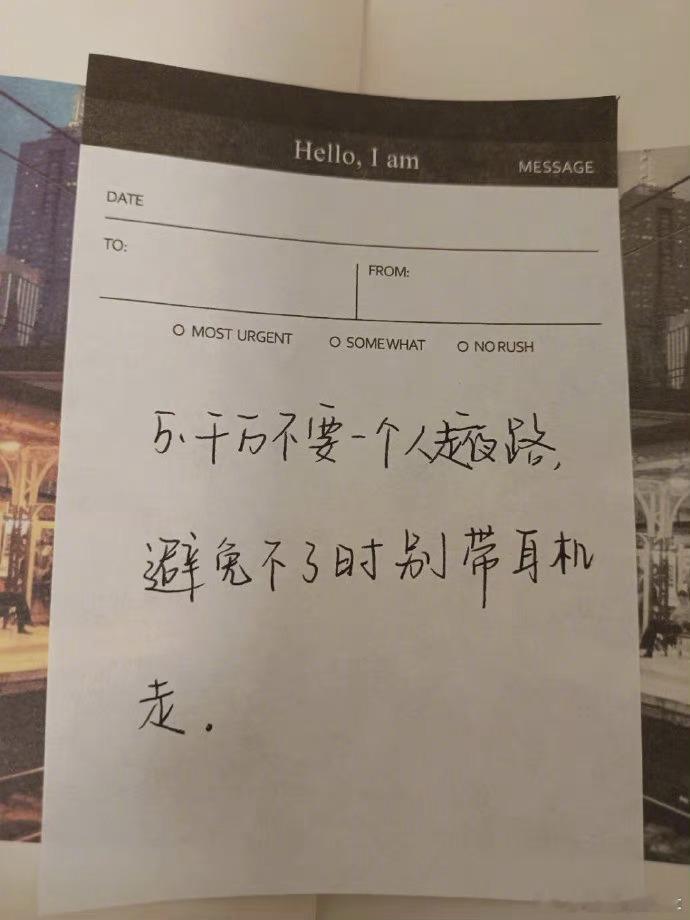 Hello, I am
MESSAGE
DATE
TO:
FROM:
O MOST URGENT O SOMEWHAT O NO RUSH
5.千万不要一个人走夜路,
避免不了时别带耳机
走.